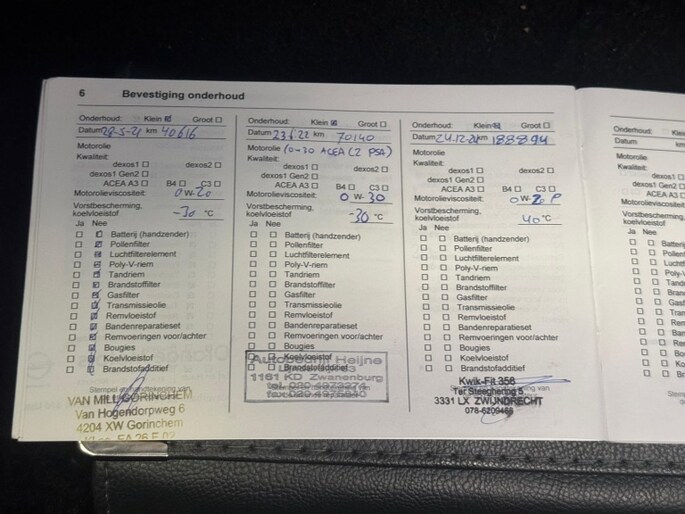 6 Bevestiging onderhoud
Onderhoud: Klein Groot
Datum 28-5-21 km 40616
Motorolie
Kwaliteit:
dexos1 dexos2
dexos1 Gen2
ACEA A3 B4 C3
Motorolieviscositeit: 0 W- 20
Vorstbescherming,
koelvloeistof -30 °C
Ja Nee
Batterij (handzender)
Pollenfilter
Luchtfilterelement
Poly-V-riem
Tandriem
Brandstoffilter
Gasfilter
Transmissieolie
Remvloeistof
Bandenreparatieset
Remvoeringen voor/achter
Bougies
Koelvloeistof
Brandstofadditief
VAN MILL GORINCHEM
Van Hogendorpweg 6
4204 XW Gorinchem
Onderhoud: Klein Groot
Datum 23.6.22 km 70140
Motorolie (0-30 ACEA C2 PSA)
Kwaliteit:
dexos1 dexos2
dexos1 Gen2
ACEA A3 B4 C3
Motorolieviscositeit: 0 W- 30
Vorstbescherming,
koelvloeistof -30 °C
Ja Nee
Batterij (handzender)
Pollenfilter
Luchtfilterelement
Poly-V-riem
Tandriem
Brandstoffilter
Gasfilter
Transmissieolie
Remvloeistof
Bandenreparatieset
Remvoeringen voor/achter
Bougies
Koelvloeistof
Brandstofadditief
Autobedrijf Heijne
1161 KD Zwanenburg
Onderhoud: Klein Groot
Datum 24.12-24 km 188894
Motorolie
Kwaliteit:
dexos1 dexos2
dexos1 Gen2
ACEA A3 B4 C3
Motorolieviscositeit: 0 W- 20 P
Vorstbescherming,
koelvloeistof 40 °C
Ja Nee
Batterij (handzender)
Pollenfilter
Luchtfilterelement
Poly-V-riem
Tandriem
Brandstoffilter
Gasfilter
Transmissieolie
Remvloeistof
Bandenreparatieset
Remvoeringen voor/achter
Bougies
Koelvloeistof
Brandstofadditief
Kwik-Fit 356
3331 LX ZWIJNDRECHT
Onderhoud:
Datum
Motorolie
Kwaliteit:
dexos1
dexos1 G
ACEA A
Vorstbescherming
koelvloeistof
Ja Nee
Batterij